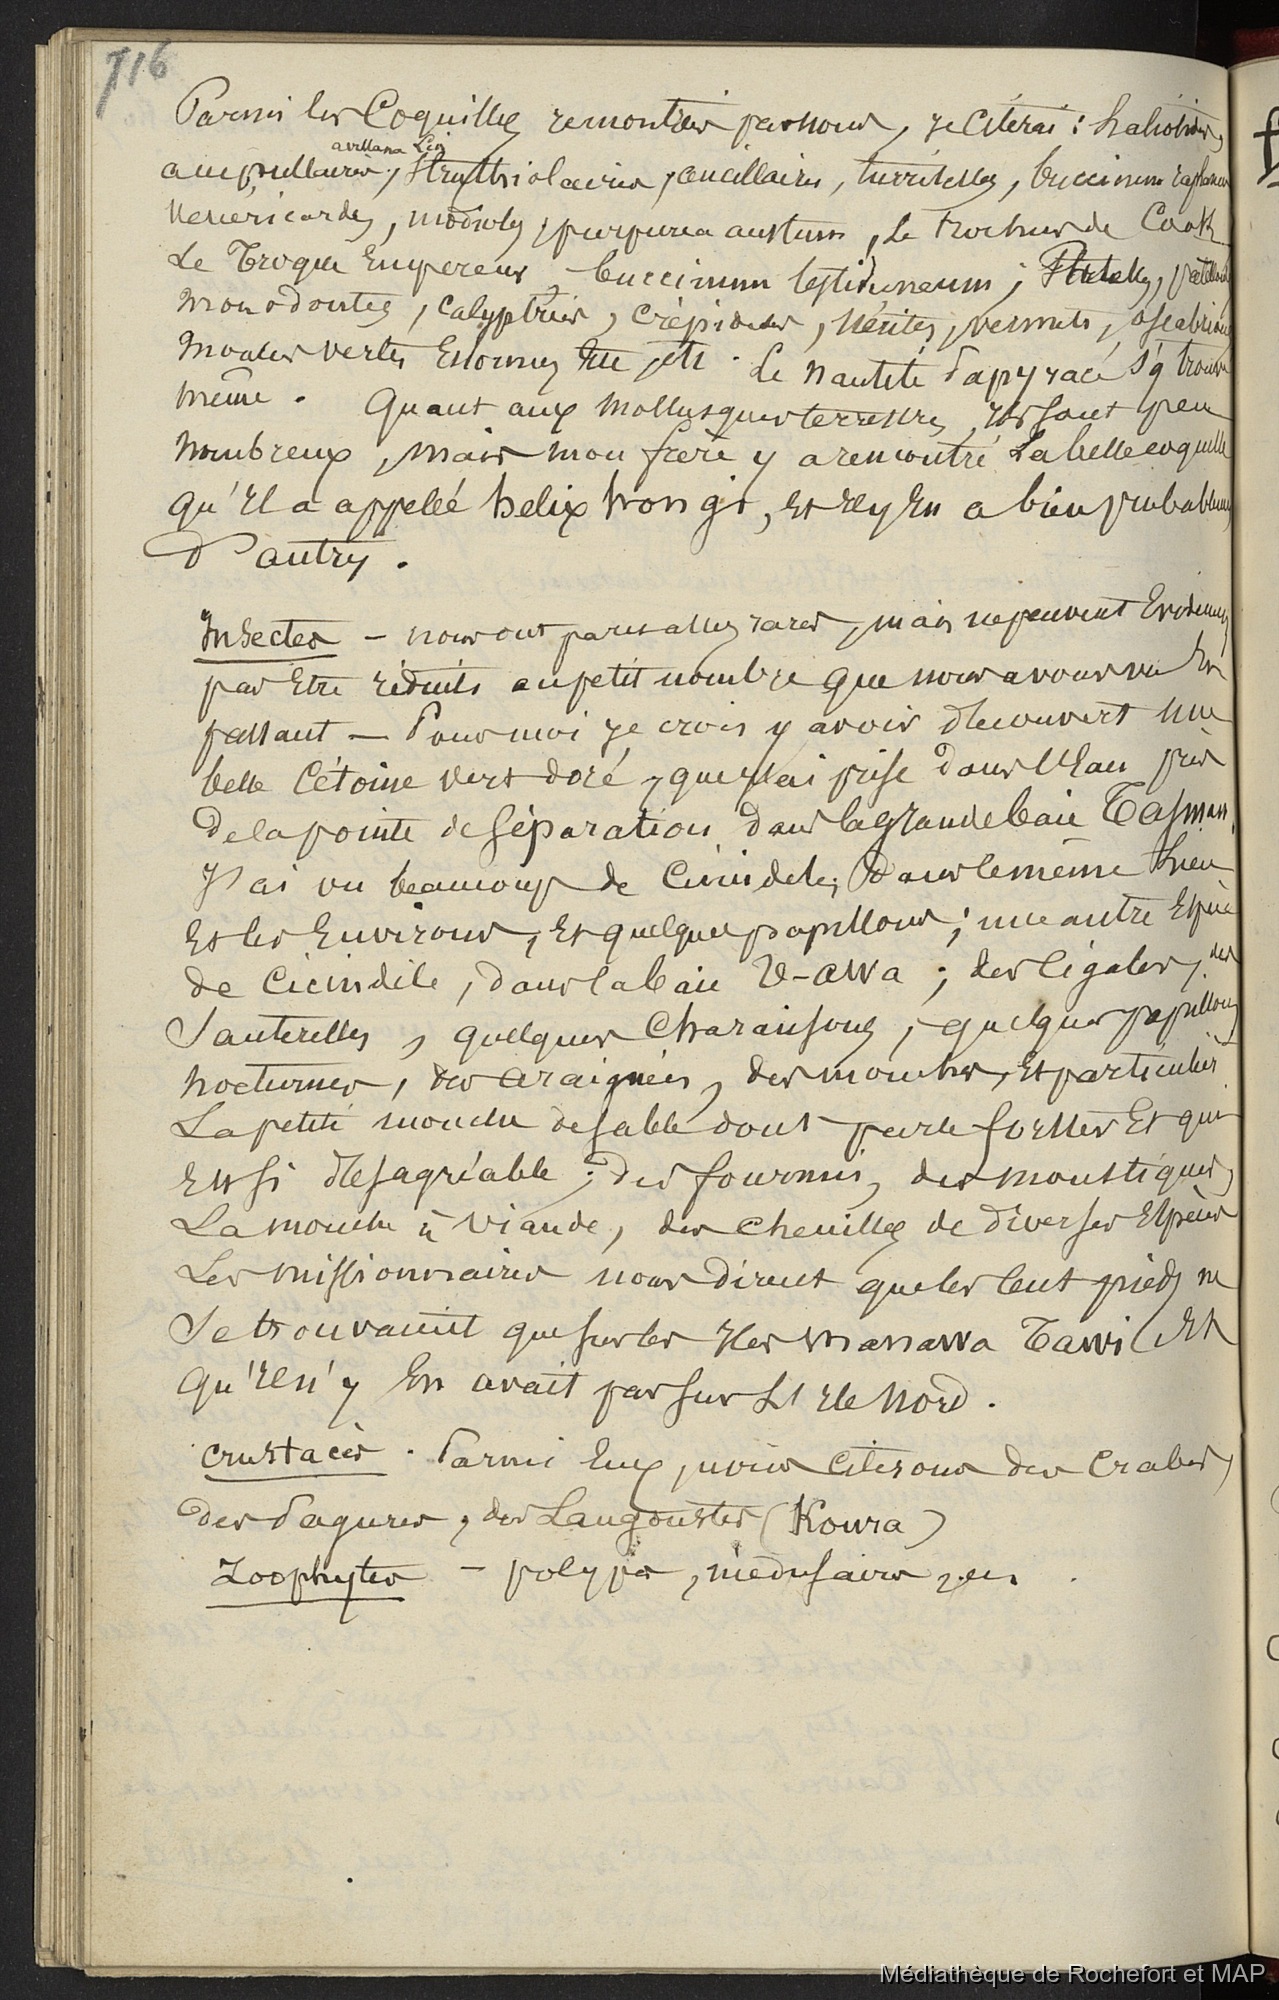 716
Parmi les Coquilles remontrées par nous, je Citerai : haliotides,
avellana Lin
ampullaires, Struthiolaires, ancillaires, turritelles, buccinum
Venericardes, modioles, purpurea austum, Le Rocher de Cook
Le Troque Empereur, buccinum testudineum ; Patelles,
monodontes, calyptrées, crépidules, Nérites, vermets, oscabrions
moules vertes Enormes Etc etc. Le Nautile Papyracé s'y trouve
même. Quant aux Mollusques terrestres, ils sont peu
nombreux, mais mon frère y a rencontré La belle coquille
qu'Il a appellé helix hongi, et Il y En a bien probablement
d'autres.
Insectes – nous ont parus assez rares, mais ne peuvent Evidemment
pas Etre réduits au petit nombre que nous avons vu En
passant – Pour moi Je crois y avoir découvert une
belle Cétoine vert doré, que J'ai prise dans l'Eau près
de la pointe de Séparation dans la grande baie Tasman.
J'ai vu beaucoup de Cicindeles dans le même Lieu
Et les Environs, Et quelques papillons ; une autre Espèce
de Cicindèle, dans la baie U-awa ; des Cigales, des
Sauterelles, quelques Charansons, quelques papillons
nocturnes, des araignées, des mouches, Et particulièr
La petite mouche de sable dont parle forster Et qui
Est si désagréable ; des fourmis, des moustiques,
La mouche à viande, des chenilles de diverses Espèces
Les missionnaires nous dirent que les cent pieds ne
se trouvaient que sur les Iles Manawa Tawi Et
qu'Il n'y En avait pas sur L'Ile Nord.
Crustacés. Parmi Eux, nous Citerons des Crabes,
des Pagures, des Langoustes (Koura)
Zoophytes – polypes, médusaires, etc.
Médiathèque de Rochefort et MAP